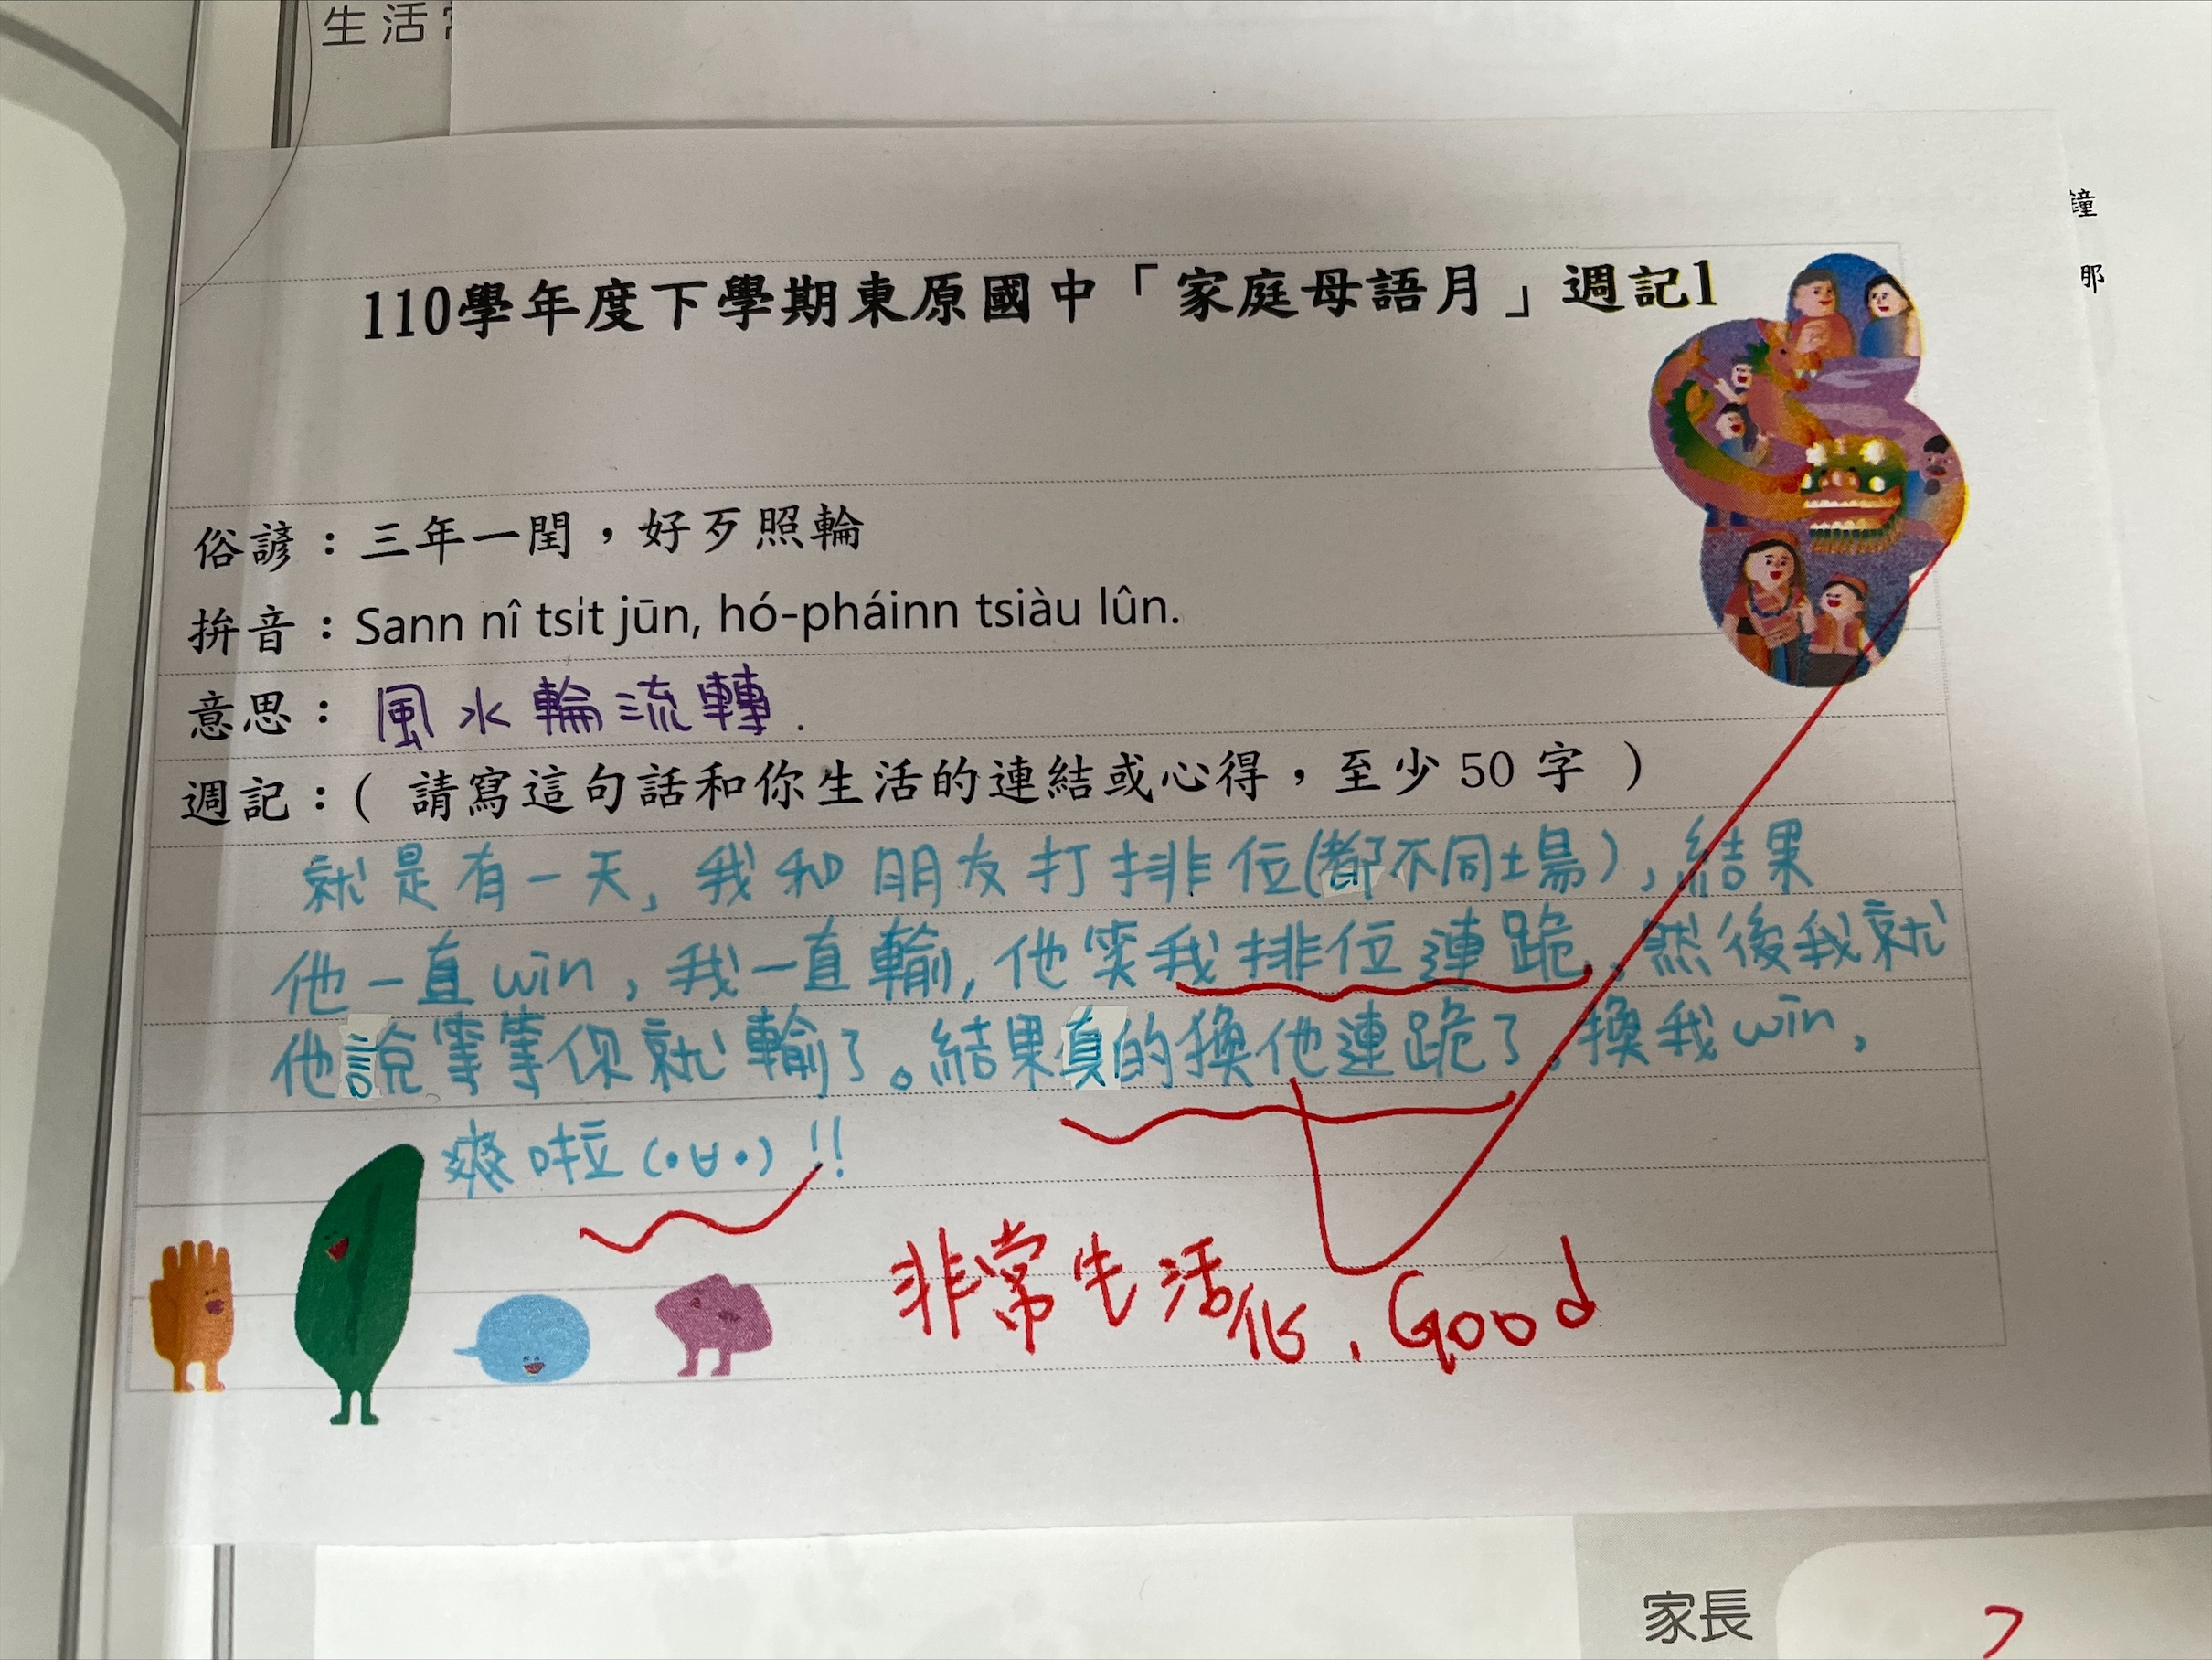 生活
鐘
那
110學年度下學期東原國中「家庭母語月」週記1
俗諺：三年一閏，好歹照輪
拚音：Sann nî tsi̍t jūn, hó-pháinn tsiàu lûn.
意思：風水輪流轉.
週記：( 請寫這句話和你生活的連結或心得，至少 50 字 )
就是有一天，我和朋友打排位(都不同場)，結果
他一直win，我一直輸，他笑我排位連跪，然後我就
他說等等你就輸了。結果真的換他連跪了，換我win，
爽啦(·ㅂ·)!!
非常生活化，Good
家長